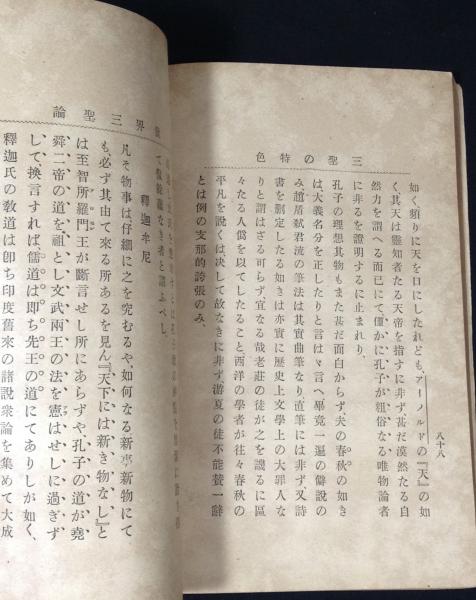 三聖の特色
八十八
如く頻りに天を口にしたれども、アーノルドの『天』の如
く其天は靈知者たる天帝を指すに非ず、甚だ漠然たる自
然力を謂へる而已にて僅かに孔子が粗俗なる唯物論者
に非るを證明するに止まれり、
孔子の理想其物もまた甚だ面白からず夫の春秋の如き
は、大義名分を正したりと言はゞ言へ畢竟一遍の僻說の
み、趙盾弑君流の筆法は其實曲筆なり直筆には非ず又詩
書を刪定したる如きは亦實に歷史上文學上の大罪人な
りと謂はざる可らず宜なる哉老莊の徒が之を譏るに區
々たる人僞を以てしたること西洋の學者が往々春秋の
平凡を說くは、決して故なきに非ず游夏の徒不能贊一辭
とは例の支那的誇張のみ、
世界三聖論
て儼然蘊なき者と謂ふべし、
釋迦牟尼
凡そ物事は仔細に之を究むるや、如何なる新事新物にて
も、必ず其由て來る所あるを見ん『天下には新き物なし』と
は至智所羅門王が斷言せし所にあらずや孔子の道が、堯
舜二帝の道を祖とし文武兩王の法を憲はせしに過ぎず
して、換言すれば、儒道は即ち先王の道にてありしが如く、
釋迦氏の敎道は卽ち印度舊來の諸說衆論を集めて大成